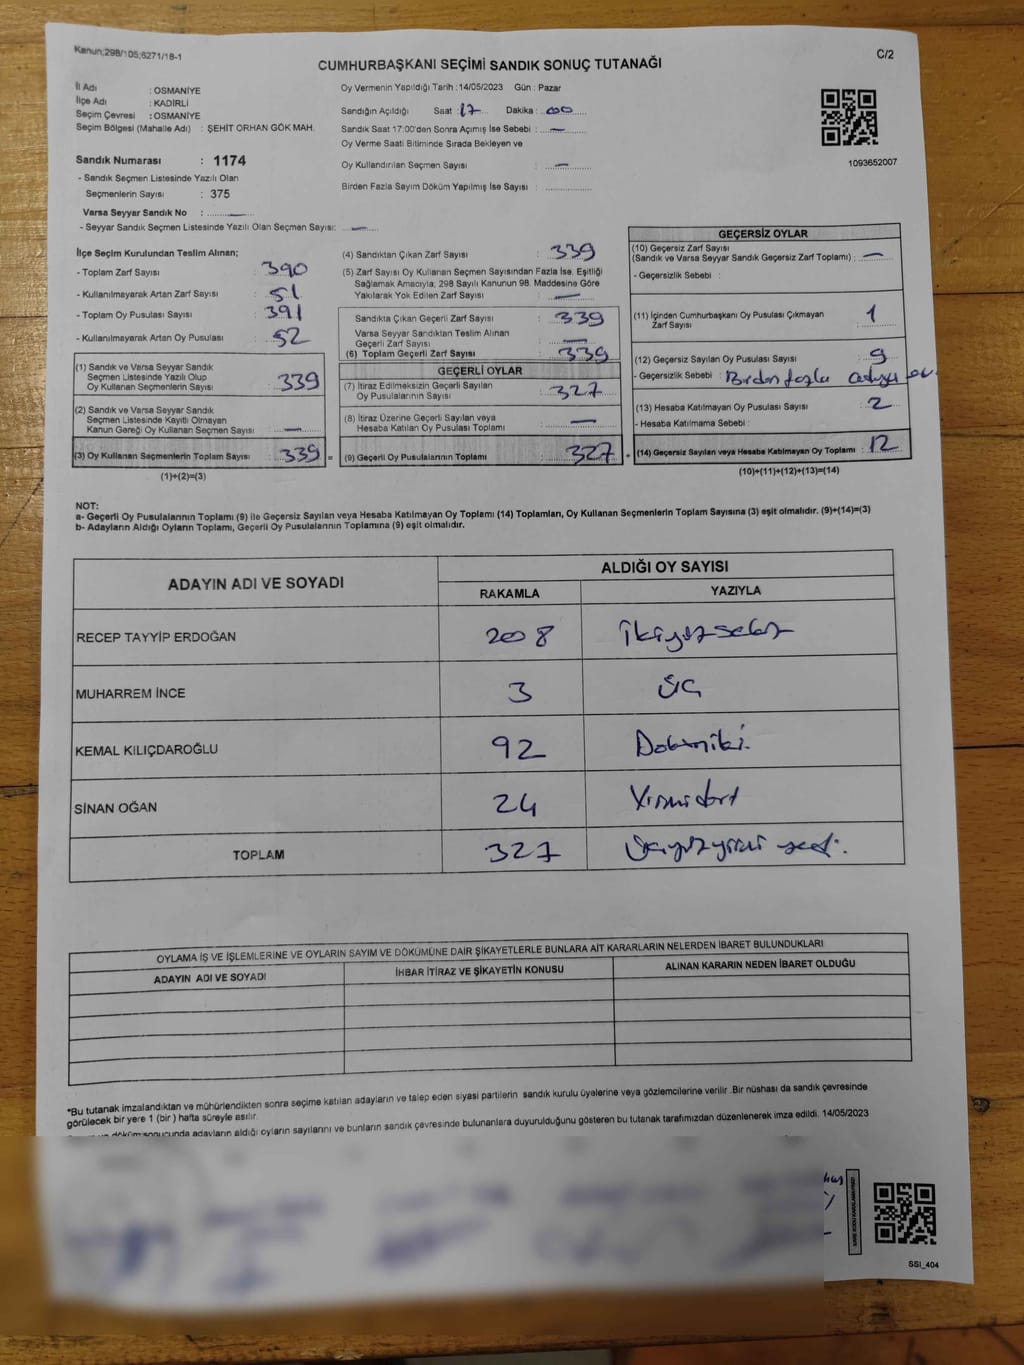 Kanun;298/105;6271/18-1
C/2
CUMHURBAŞKANI SEÇİMİ SANDIK SONUÇ TUTANAĞI
İl Adı : OSMANİYE
İlçe Adı : KADİRLİ
Seçim Çevresi : OSMANİYE
Seçim Bölgesi (Mahalle Adı) : ŞEHİT ORHAN GÖK MAH.
Sandık Numarası : 1174
- Sandık Seçmen Listesinde Yazılı Olan
Seçmenlerin Sayısı : 375
Varsa Seyyar Sandık No : —
- Seyyar Sandık Seçmen Listesinde Yazılı Olan Seçmen Sayısı: —
Oy Vermenin Yapıldığı Tarih : 14/05/2023 Gün : Pazar
Sandığın Açıldığı Saat : 17 Dakika : 00
Sandık Saat 17:00'den Sonra Açımış İse Sebebi : —
Oy Verme Saati Bitiminde Sırada Bekleyen ve
Oy Kullandırılan Seçmen Sayısı : —
Birden Fazla Sayım Döküm Yapılmış İse Sayısı :
1093652007
İlçe Seçim Kurulundan Teslim Alınan;
- Toplam Zarf Sayısı : 390
- Kullanılmayarak Artan Zarf Sayısı : 51
- Toplam Oy Pusulası Sayısı : 391
- Kullanılmayarak Artan Oy Pusulası : 52
(1) Sandık ve Varsa Seyyar Sandık
Seçmen Listesinde Yazılı Olup
Oy Kullanan Seçmenlerin Sayısı : 339
(2) Sandık ve Varsa Seyyar Sandık
Seçmen Listesinde Kayıtlı Olmayan
Kanun Gereği Oy Kullanan Seçmen Sayısı : —
(3) Oy Kullanan Seçmenlerin Toplam Sayısı : 339 =
(1)+(2)=(3)
(4) Sandıktan Çıkan Zarf Sayısı : 339
(5) Zarf Sayısı Oy Kullanan Seçmen Sayısından Fazla İse, Eşitliği
Sağlamak Amacıyla; 298 Sayılı Kanunun 98. Maddesine Göre
Yakılarak Yok Edilen Zarf Sayısı : —
Sandıkta Çıkan Geçerli Zarf Sayısı : 339
Varsa Seyyar Sandıktan Teslim Alınan
Geçerli Zarf Sayısı : —
(6) Toplam Geçerli Zarf Sayısı : 339
GEÇERLİ OYLAR
(7) İtiraz Edilmeksizin Geçerli Sayılan
Oy Pusulasının Sayısı : 327
(8) İtiraz Üzerine Geçerli Sayılan veya
Hesaba Katılan Oy Pusulası Toplamı : —
(9) Geçerli Oy Pusulalarının Toplamı : 327 +
GEÇERSİZ OYLAR
(10) Geçersiz Zarf Sayısı
(Sandık ve Varsa Seyyar Sandık Geçersiz Zarf Toplamı) : —
- Geçersizlik Sebebi :
(11) İçinden Cumhurbaşkanı Oy Pusulası Çıkmayan
Zarf Sayısı : 1
(12) Geçersiz Sayılan Oy Pusulası Sayısı : 9
- Geçersizlik Sebebi : Birden fazla
(13) Hesaba Katılmayan Oy Pusulası Sayısı : 2
- Hesaba Katılmama Sebebi :
(14) Geçersiz Sayılan veya Hesaba Katılmayan Oy Toplamı : 12
(10)+(11)+(12)+(13)=(14)
NOT:
a- Geçerli Oy Pusulalarının Toplamı (9) ile Geçersiz Sayılan veya Hesaba Katılmayan Oy Toplamı (14) Toplamları, Oy Kullanan Seçmenlerin Toplam Sayısına (3) eşit olmalıdır. (9)+(14)=(3)
b- Adayların Aldığı Oyların Toplamı, Geçerli Oy Pusulalarının Toplamına (9) eşit olmalıdır.
ADAYIN ADI VE SOYADI
ALDIĞI OY SAYISI
RAKAMLA YAZIYLA
RECEP TAYYİP ERDOĞAN 208 ikiyüzsekiz
MUHARREM İNCE 3 üç
KEMAL KILIÇDAROĞLU 92 Doksaniki
SİNAN OĞAN 24 Yirmidört
TOPLAM 327 üçyüzyirmi yedi.
OYLAMA İŞ VE İŞLEMLERİNE VE OYLARIN SAYIM VE DÖKÜMÜNE DAİR ŞİKAYETLERLE BUNLARA AİT KARARLARIN NELERDEN İBARET BULUNDUKLARI
ADAYIN ADI VE SOYADI İHBAR İTİRAZ VE ŞİKAYETİN KONUSU ALINAN KARARIN NEDEN İBARET OLDUĞU
*Bu tutanak imzalandıktan ve mühürlendikten sonra seçime katılan adayların ve talep eden siyasi partilerin sandık kurulu üyelerine veya gözlemcilerine verilir .Bir nüshası da sandık çevresinde
görülecek bir yere 1 (bir ) hafta süreyle asılır.
döküm sonucunda adayların aldığı oyların sayılarını ve bunların sandık çevresinde bulunanlara duyurulduğunu gösteren bu tutanak tarafımızdan düzenlenerek imza edildi. 14/05/2023
SSI_404